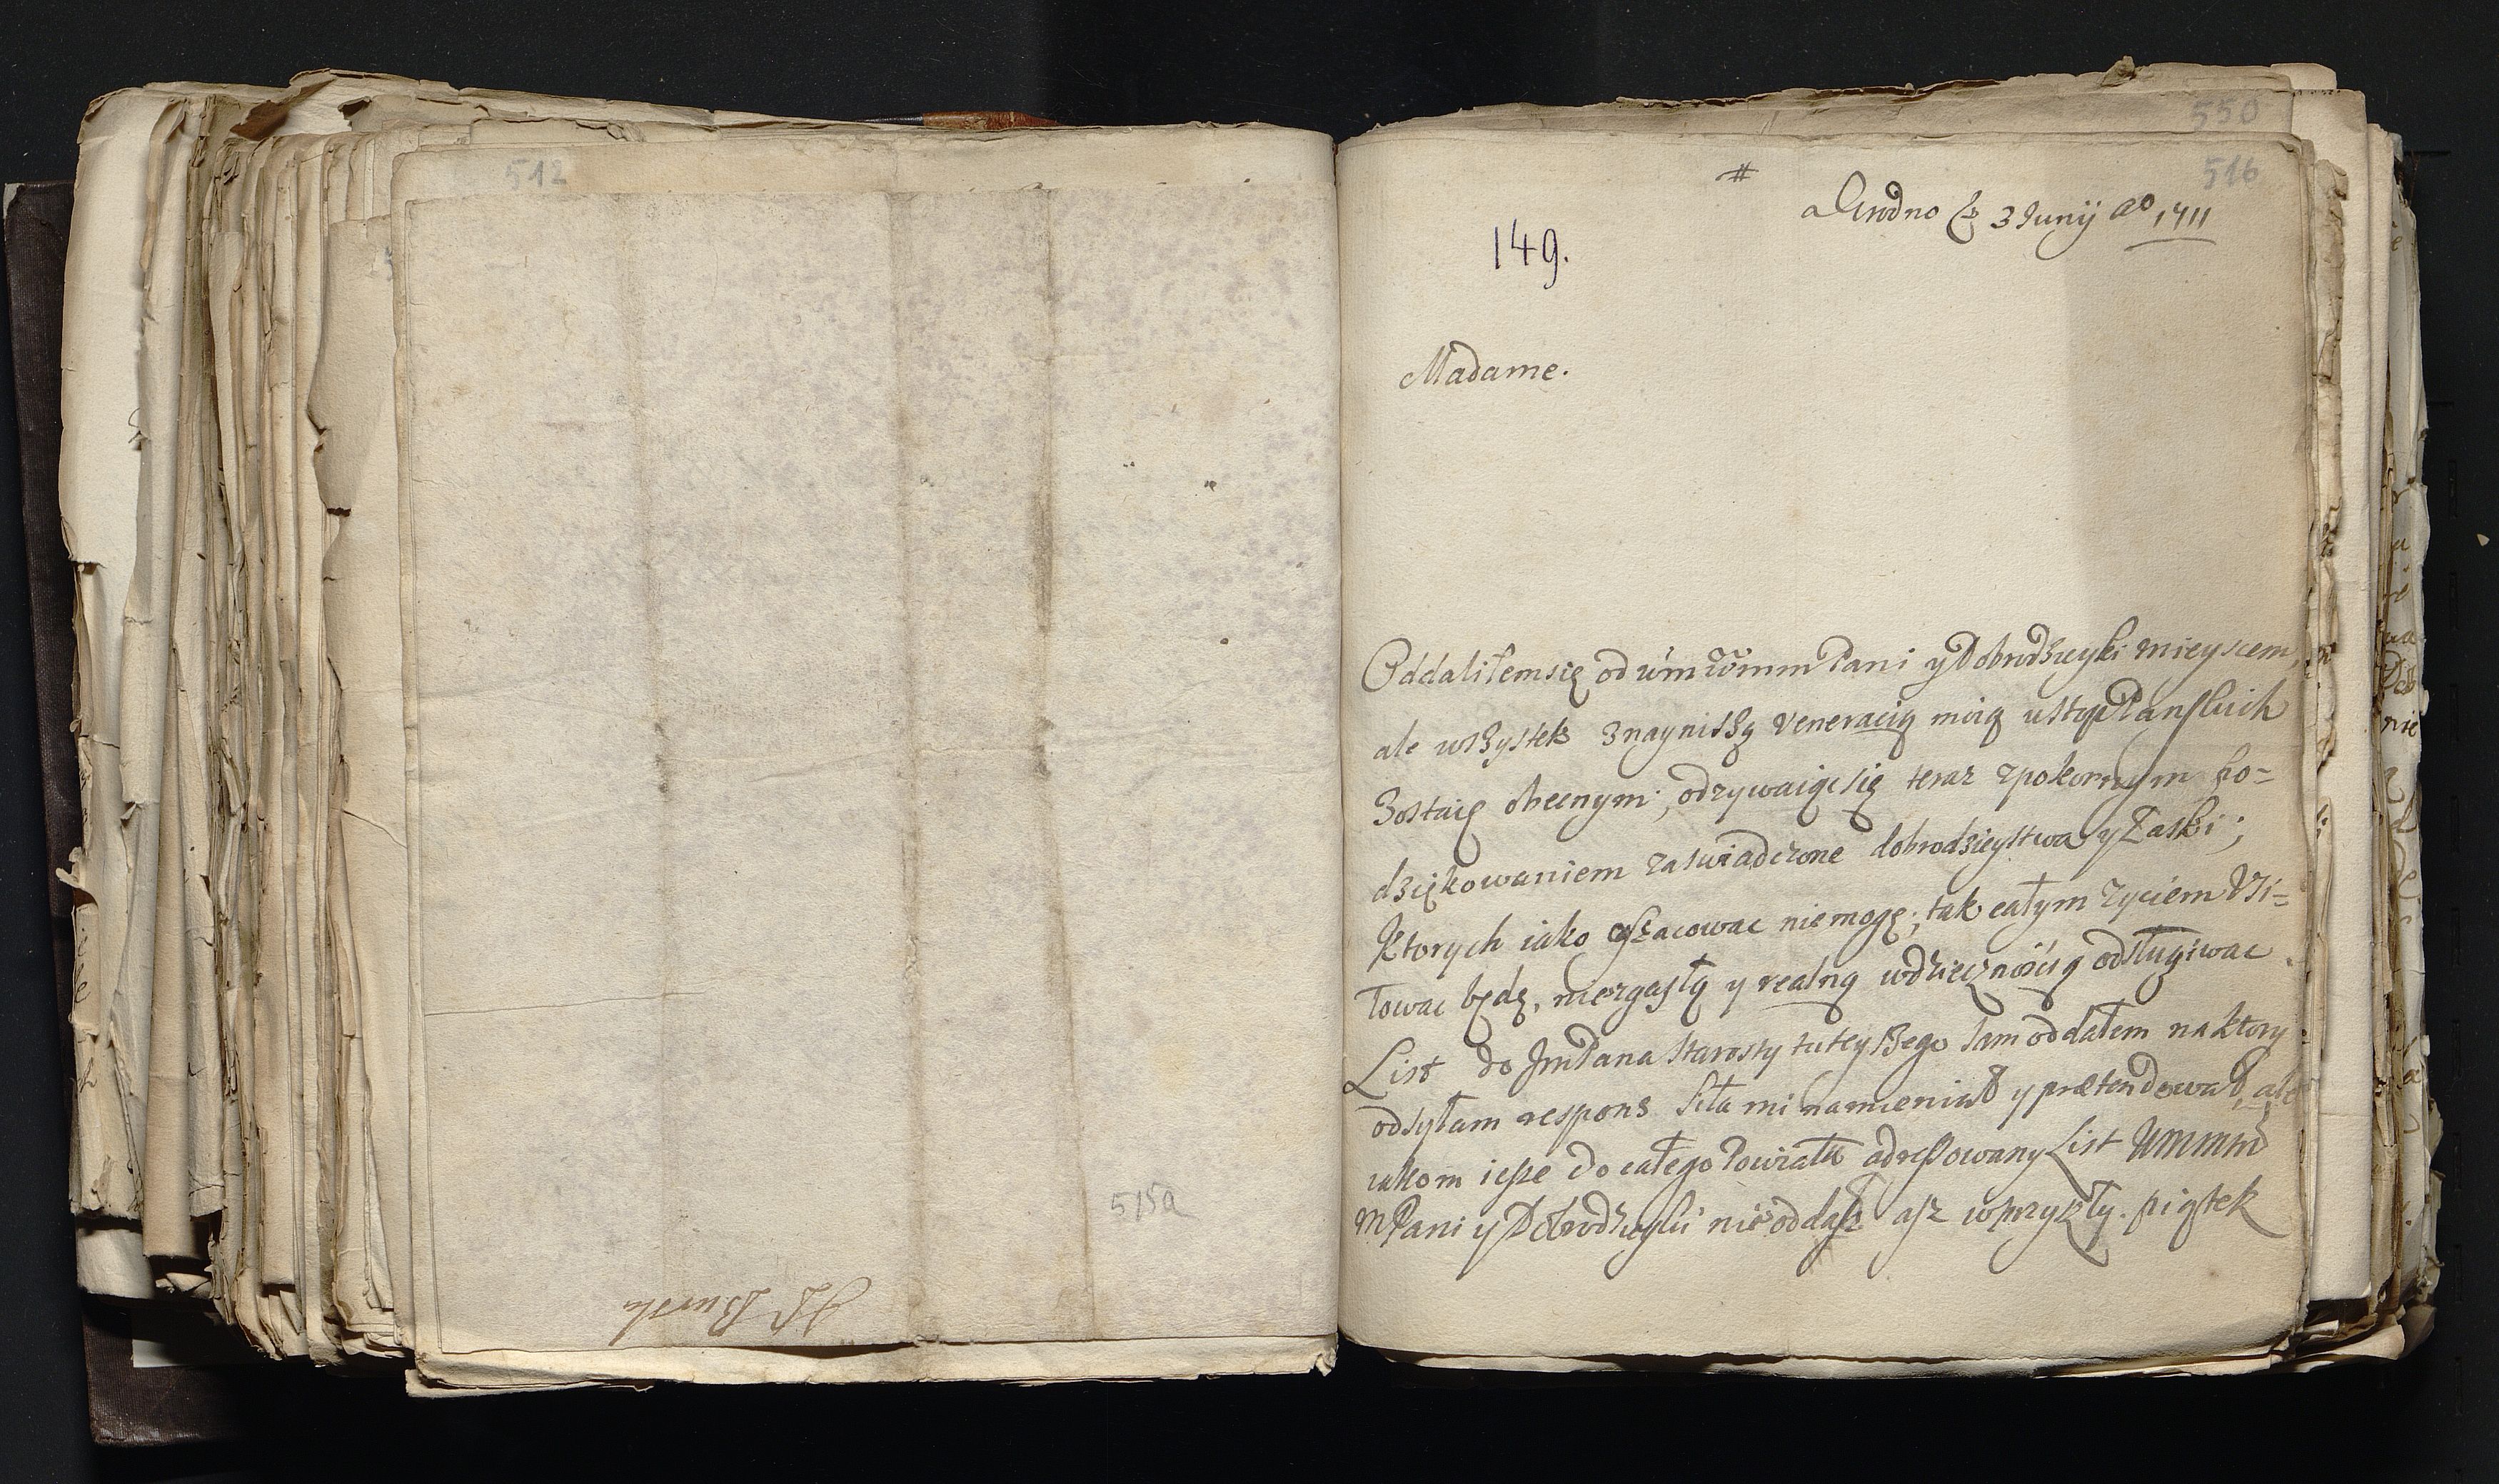 512
515a
550
516
#
a Grodno 3 Junij Ao 1711
149.
Madame.
Oddaliłem się od wm wmm Pani y Dobrodzieyki mieyscem,
ale wszystek z nayniszą Veneracią moią u stop Panskich
Zostaię obecnym; odzywaiąc się teraz z pokornym po=
dziękowaniem za swiadczone dobrodzieystwa y Łaski;
Ktorych iako oszacowac nie mogę; tak całym zyciem Vsi=
łowac będę, niezgasłą y realną wdziecznością odsługiwac.
List do Jm Pana Starosty tuteyszego sam oddałem na ktory
odsyłam respons siła mi namieniał y prætendował, ale
iakom iesze do całego Powiatu adressowany List Wmmm
M Pani y Dobrodzieyki nie oddał asz w przyszły piątek